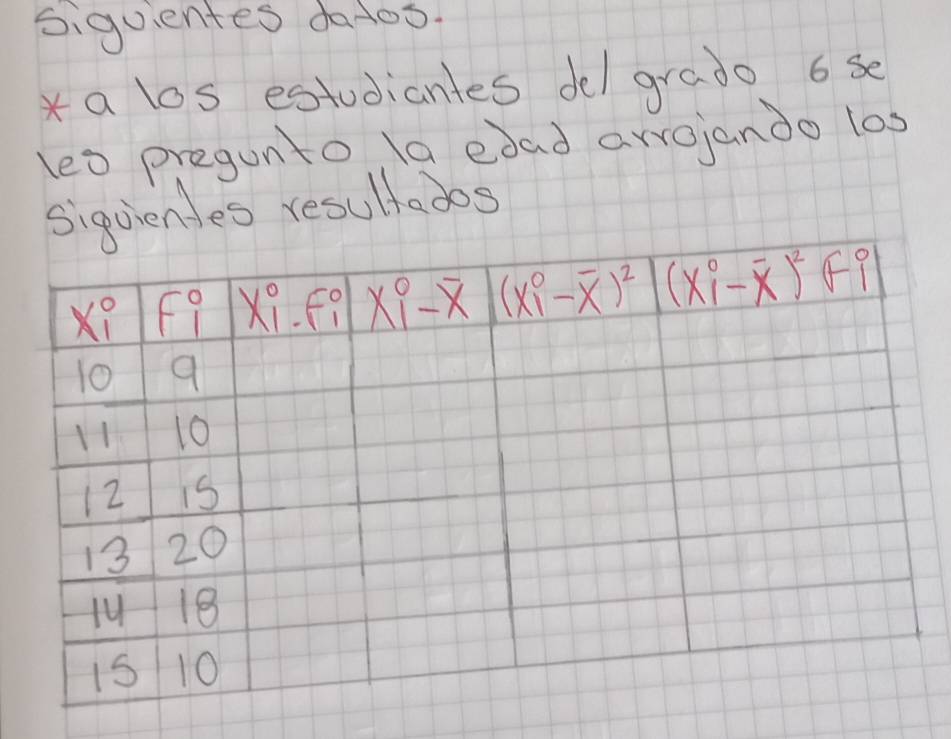 siguientes datos.
* a los estudiantes del grado 6 se
les pregunto la edad arrojando los
siguientes resultados
Xi Fi Xi.Fi Xi-X̄ (Xi-X̄)² (Xi-X̄)² Fi
10 9
11 10
12 15
13 20
14 18
15 10